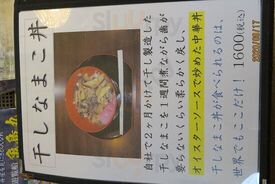 干しなまこ丼
自社で2ヶ月かけて干し製造した
干しなまこを1週間煮ながら歯が
要らないくらい柔らかく戻し、
オイスターソースで炒めた中華丼
干しなまこ丼が食べられるのは、
世界でもここだけ!
1600(税込)
2020/08/17